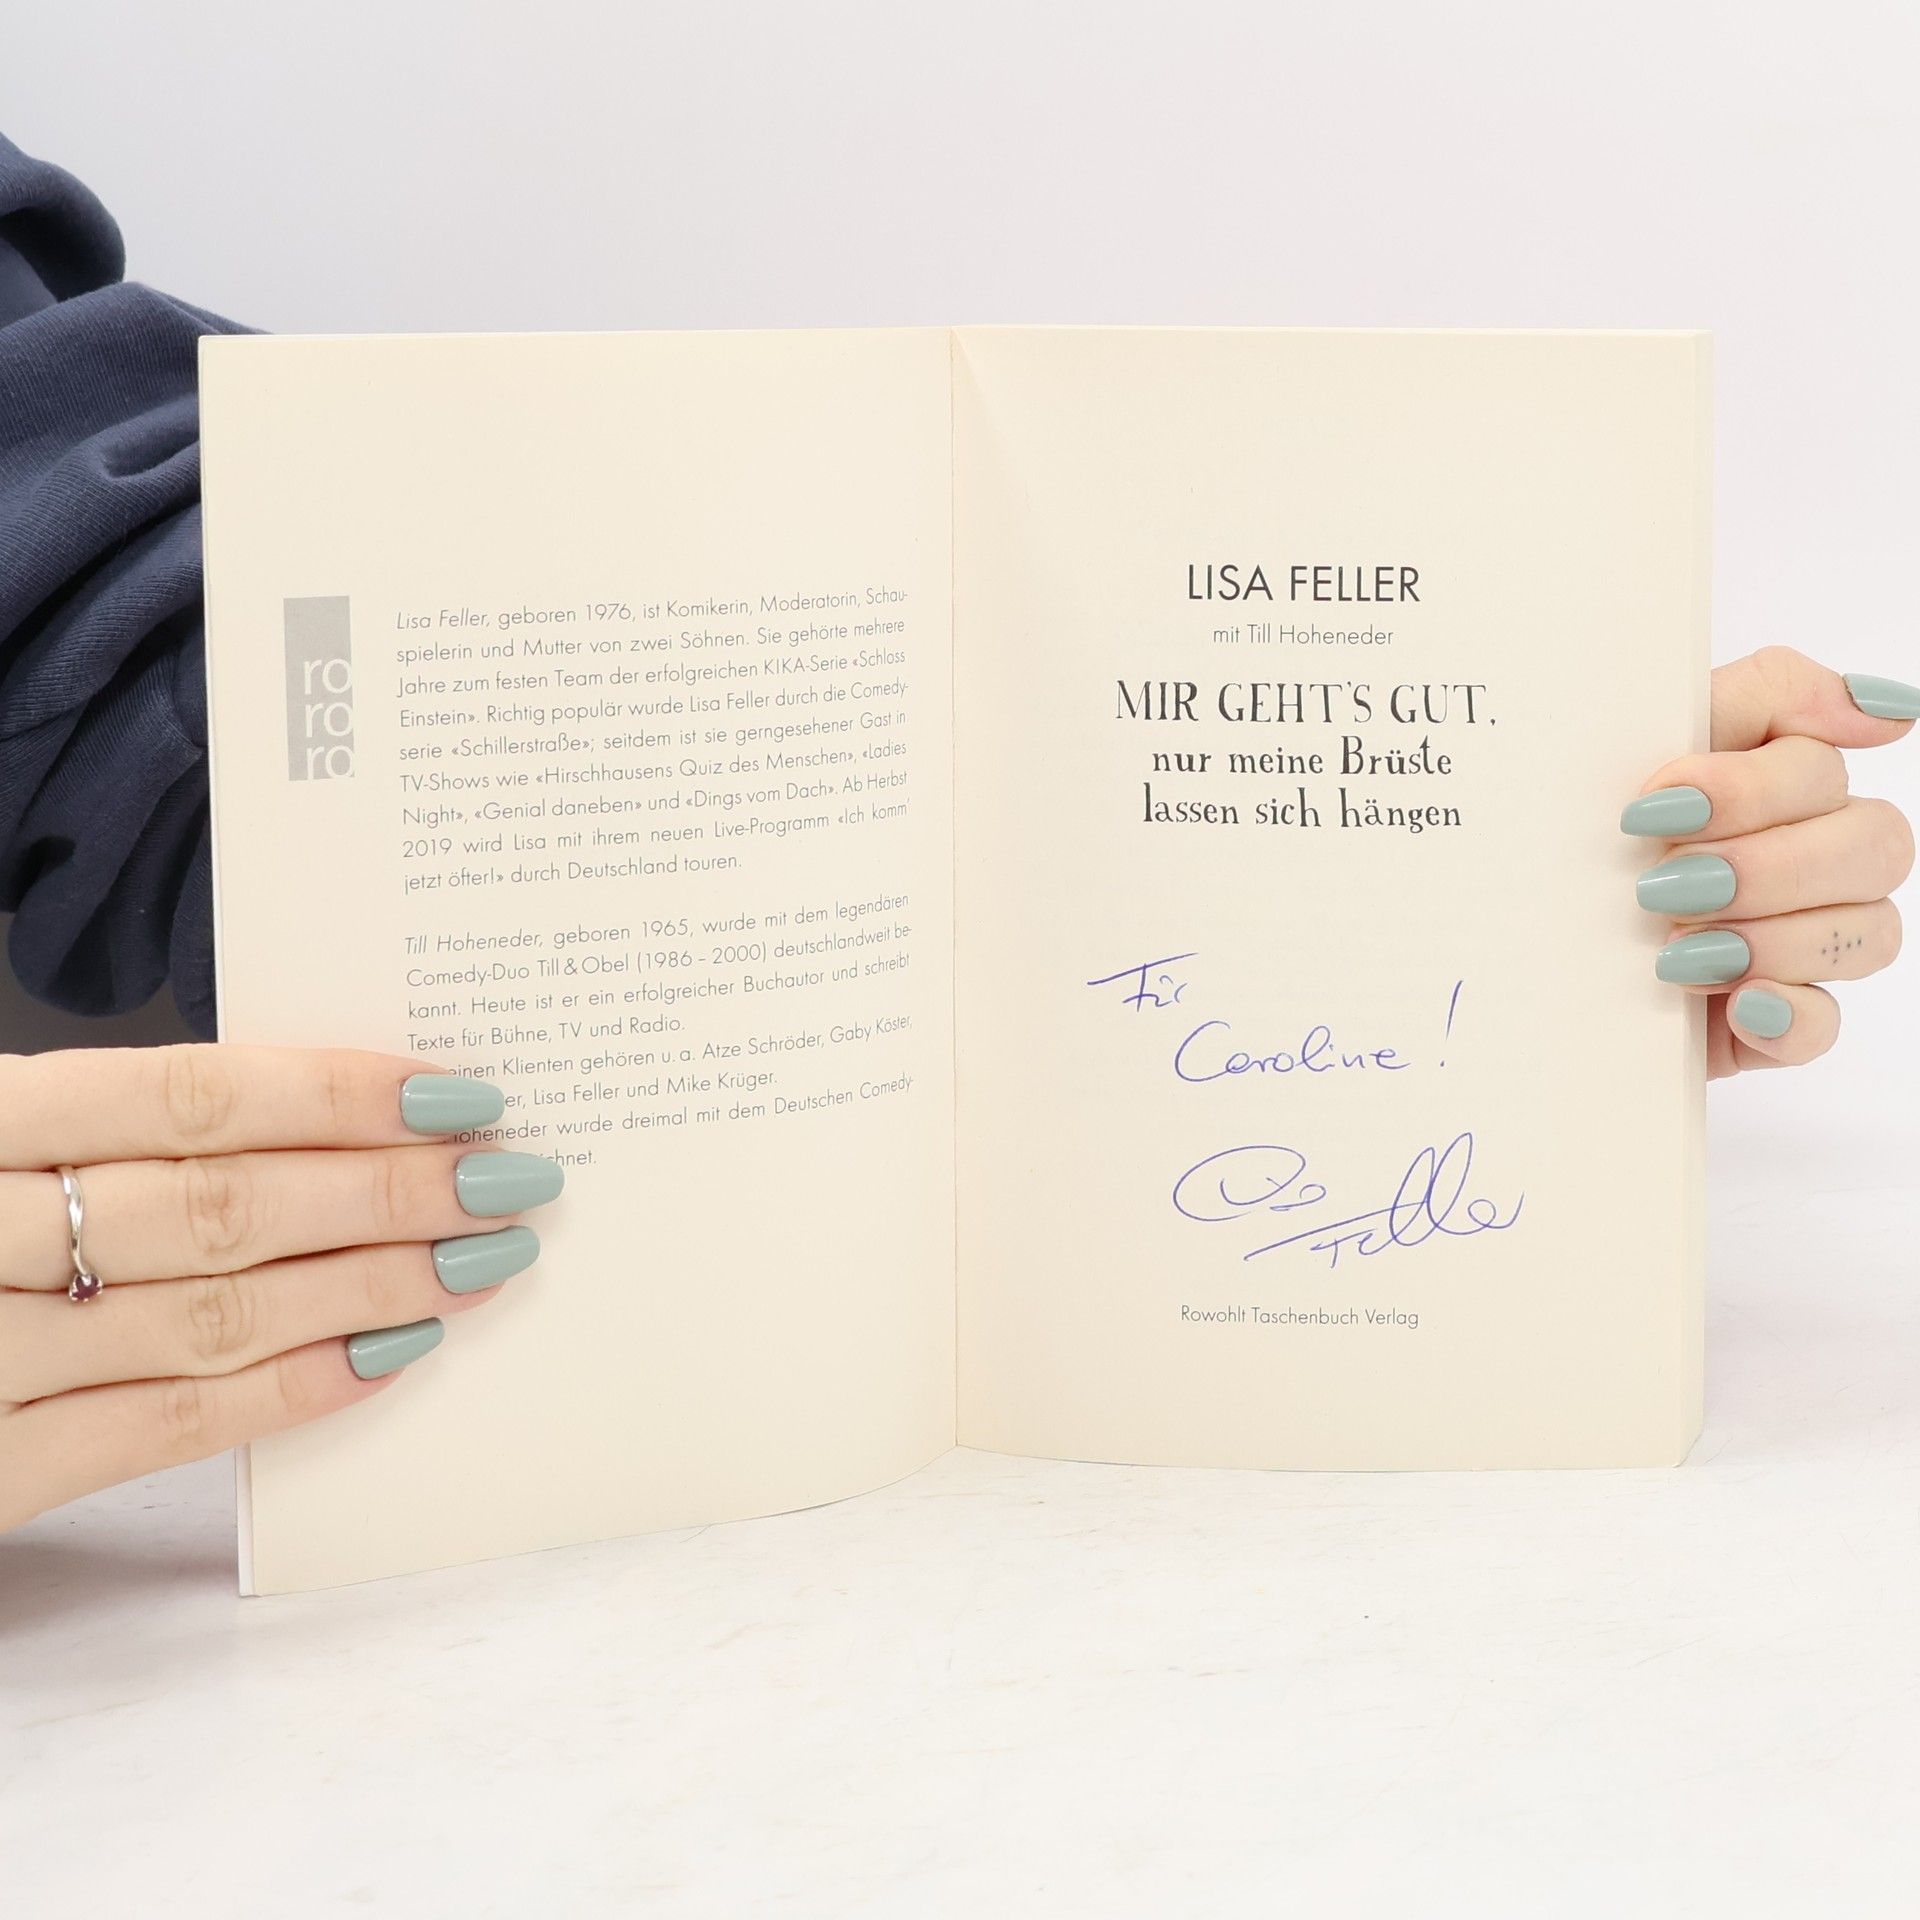 ro
ro
ro
Lisa Feller, geboren 1976, ist Komikerin, Moderatorin, Schau-
spielerin und Mutter von zwei Söhnen. Sie gehörte mehrere
Jahre zum festen Team der erfolgreichen KIKA-Serie «Schloss
Einstein». Richtig populär wurde Lisa Feller durch die Comedy-
serie «Schillerstraße»; seitdem ist sie gerngesehener Gast in
TV-Shows wie «Hirschhausens Quiz des Menschen», «Ladies
Night», «Genial daneben» und «Dings vom Dach». Ab Herbst
2019 wird Lisa mit ihrem neuen Live-Programm «Ich komm'
jetzt öfter!» durch Deutschland touren.
Till Hoheneder, geboren 1965, wurde mit dem legendären
Comedy-Duo Till & Obel (1986 – 2000) deutschlandweit be-
kannt. Heute ist er ein erfolgreicher Buchautor und schreibt
Texte für Bühne, TV und Radio.
einen Klienten gehören u. a. Atze Schröder, Gaby Köster,
er, Lisa Feller und Mike Krüger.
Hoheneder wurde dreimal mit dem Deutschen Comedy-
chnet.
LISA FELLER
mit Till Hoheneder
MIR GEHT'S GUT,
nur meine Brüste
lassen sich hängen
Für
Caroline!
Lisa
Feller
Rowohlt Taschenbuch Verlag